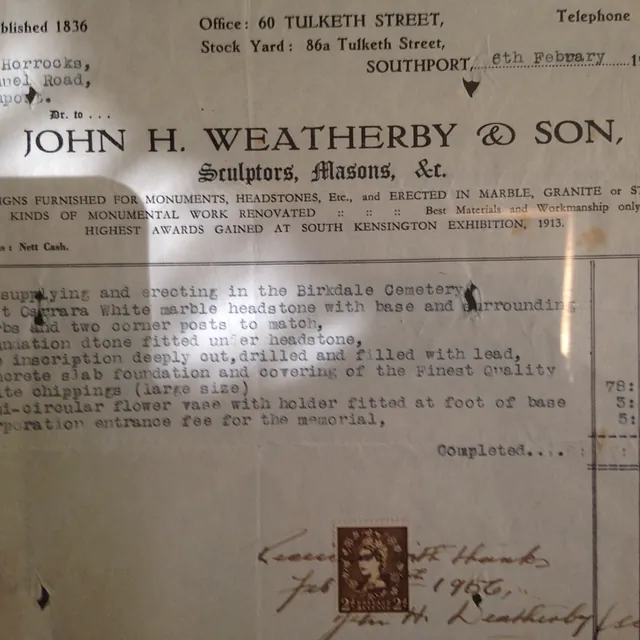 blished 1836
Office: 60 TULKETH STREET,
Telephone
Stock Yard: 86a Tulketh Street,
Horrocks,
SOUTHPORT, 6th Febuary 19
nel Road,
port.
Dr. to . . .
JOHN H. WEATHERBY & SON,
Sculptors, Masons, &c.
IGNS FURNISHED FOR MONUMENTS, HEADSTONES, Etc., and ERECTED IN MARBLE, GRANITE or ST
KINDS OF MONUMENTAL WORK RENOVATED :: :: :: Best Materials and Workmanship only
HIGHEST AWARDS GAINED AT SOUTH KENSINGTON EXHIBITION, 1913.
s: Nett Cash.
supplying and erecting in the Birkdale Cemetery
t Carrara White marble headstone with base and surrounding
bs and two corner posts to match,
ndation dtone fitted under headstone,
inscription deeply out,drilled and filled with lead,
ncrete slab foundation and covering of the Finest Quality
ite chippings (large size)
78:
mi-circular flower vase with holder fitted at foot of base
3:
rporation entrance fee for the memorial,
5:
Completed....
with thanks
Feb 1956,
John H. Weatherby